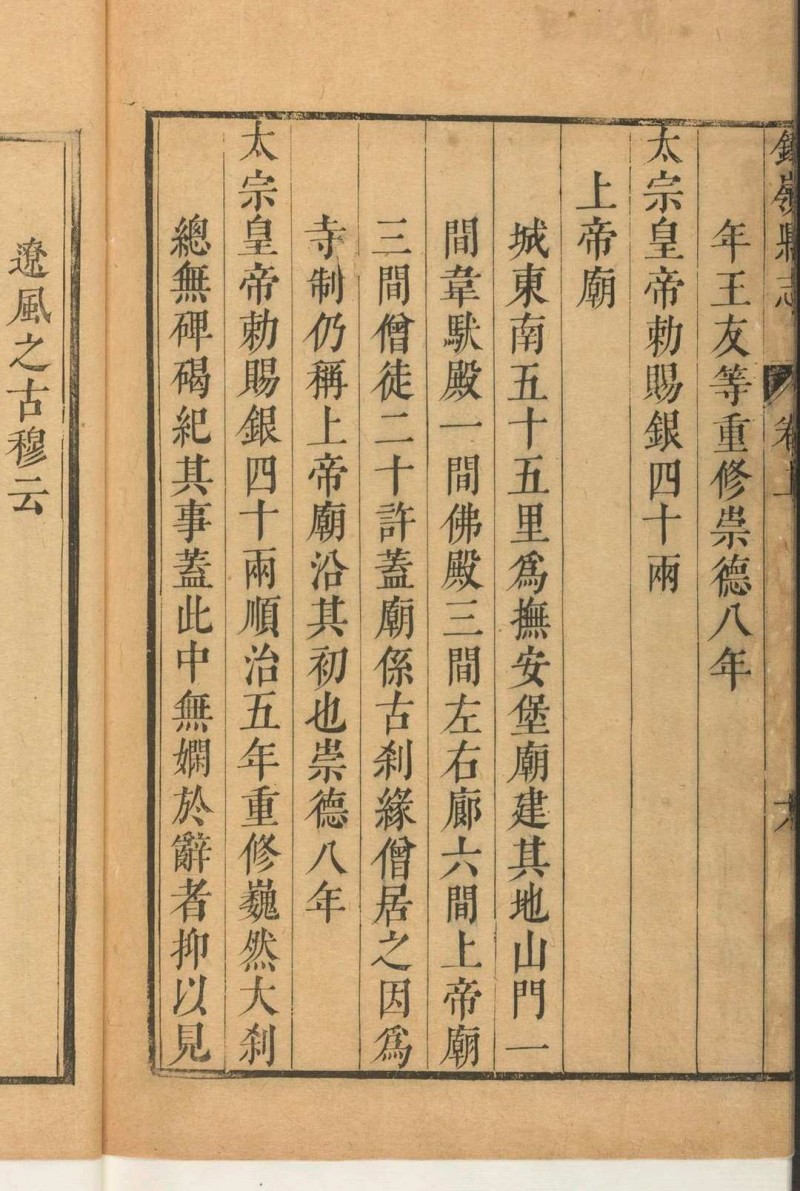 鐵嶺縣志 卷上 六
年王友等重修崇德八年
太宗皇帝勅賜銀四十兩
上帝廟
城東南五十五里爲撫安堡廟建其地山門一
間韋馱殿一間佛殿三間左右廊六間上帝廟
三間僧徒二十許蓋廟係古刹緣僧居之因爲
寺制仍稱上帝廟沿其初也崇德八年
太宗皇帝勅賜銀四十兩順治五年重修巍然大刹
總無碑碣紀其事蓋此中無嫻於辭者抑以見
遼風之古穆云